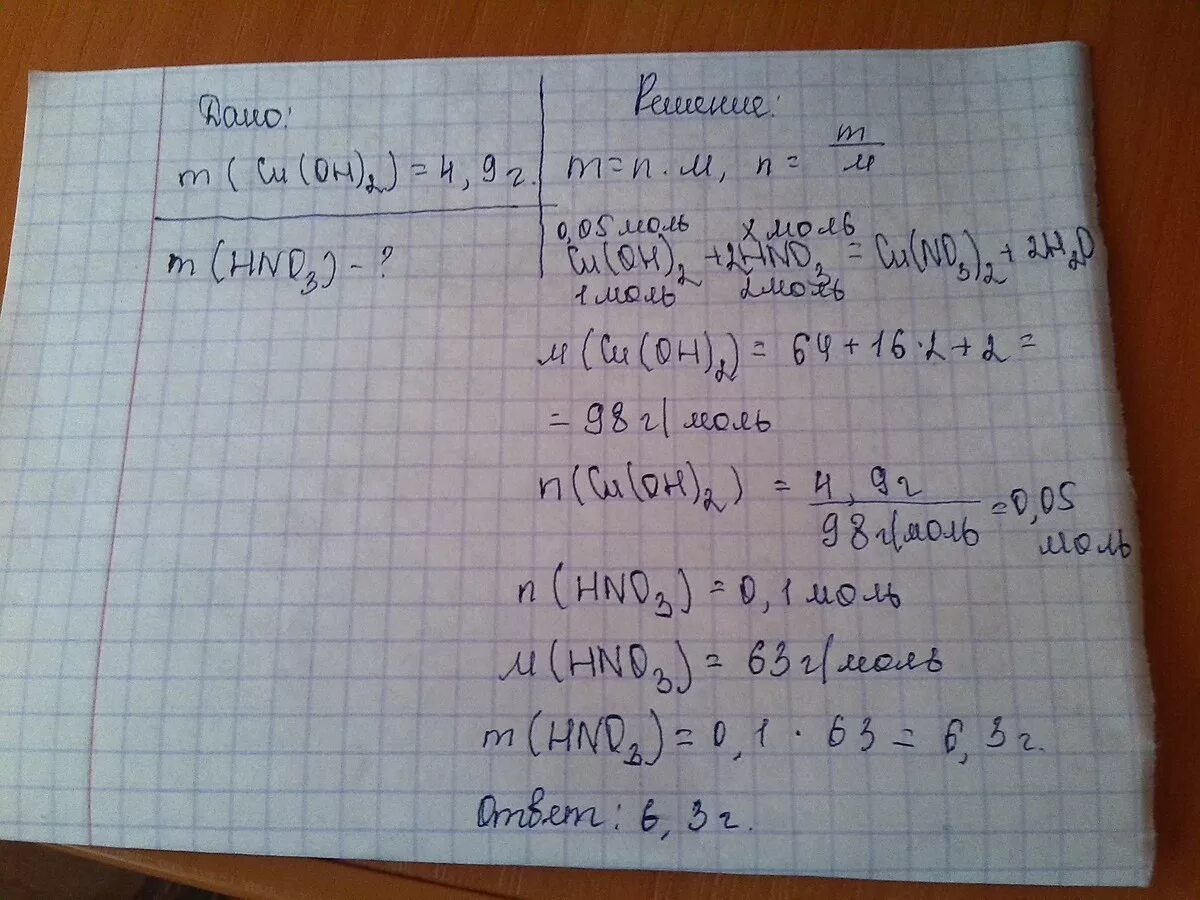 Дано:
m(Cu(OH)₂)=4,9г.
m(HNO₃)-?
Решение:
m=n·M, n= m/M
0,05моль х моль
Cu(OH)₂+2HNO₃=Cu(NO₃)₂+2H₂O
1моль 2моль
M(Cu(OH)₂)=64+16·2+2=
=98г/моль
n(Cu(OH)₂) = 4,9г/98г/моль =0,05
моль
n(HNO₃)=0,1моль
M(HNO₃)=63г/моль
m(HNO₃)=0,1·63=6,3г.
Ответ: 6,3г.